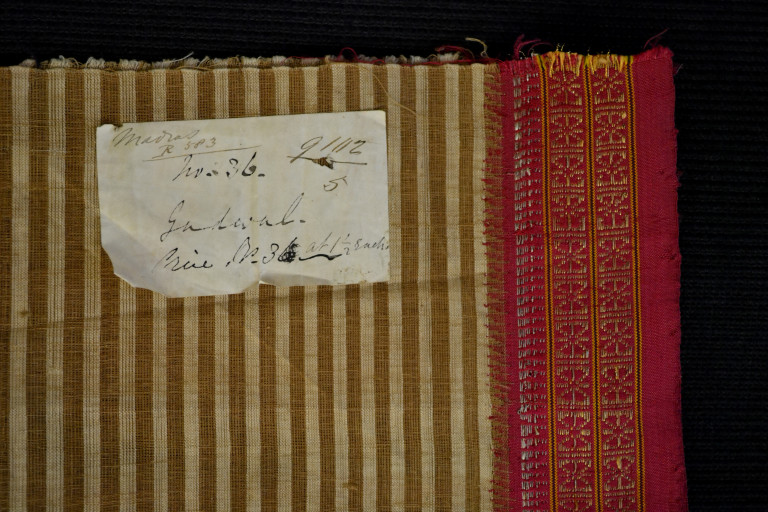 Madras
R 583
No. 36.
9102
5
Gadwal.
Price Rs. 36 at 1½ each